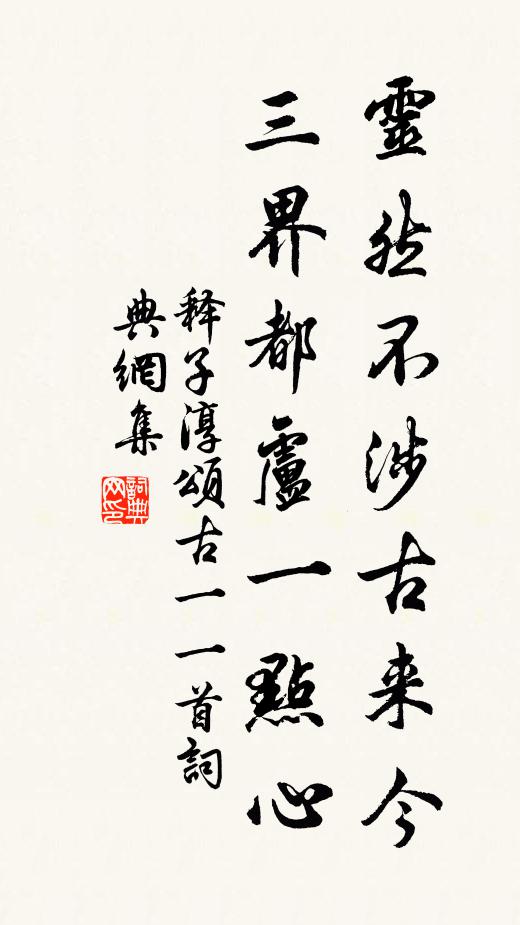 靈然不涉古来今
三界都盧一點心
释子淳頌古一一首詞
典網集
詞典
网印